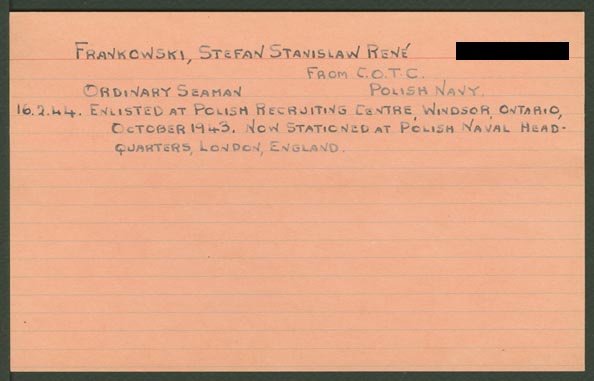 FRANKOWSKI, STEFAN STANISLAW RENÉ
FROM C.O.T.C.
ORDINARY SEAMAN POLISH NAVY.
16.2.44. ENLISTED AT POLISH RECRUITING CENTRE, WINDSOR, ONTARIO,
OCTOBER 1943. NOW STATIONED AT POLISH NAVAL HEAD-
QUARTERS, LONDON, ENGLAND.